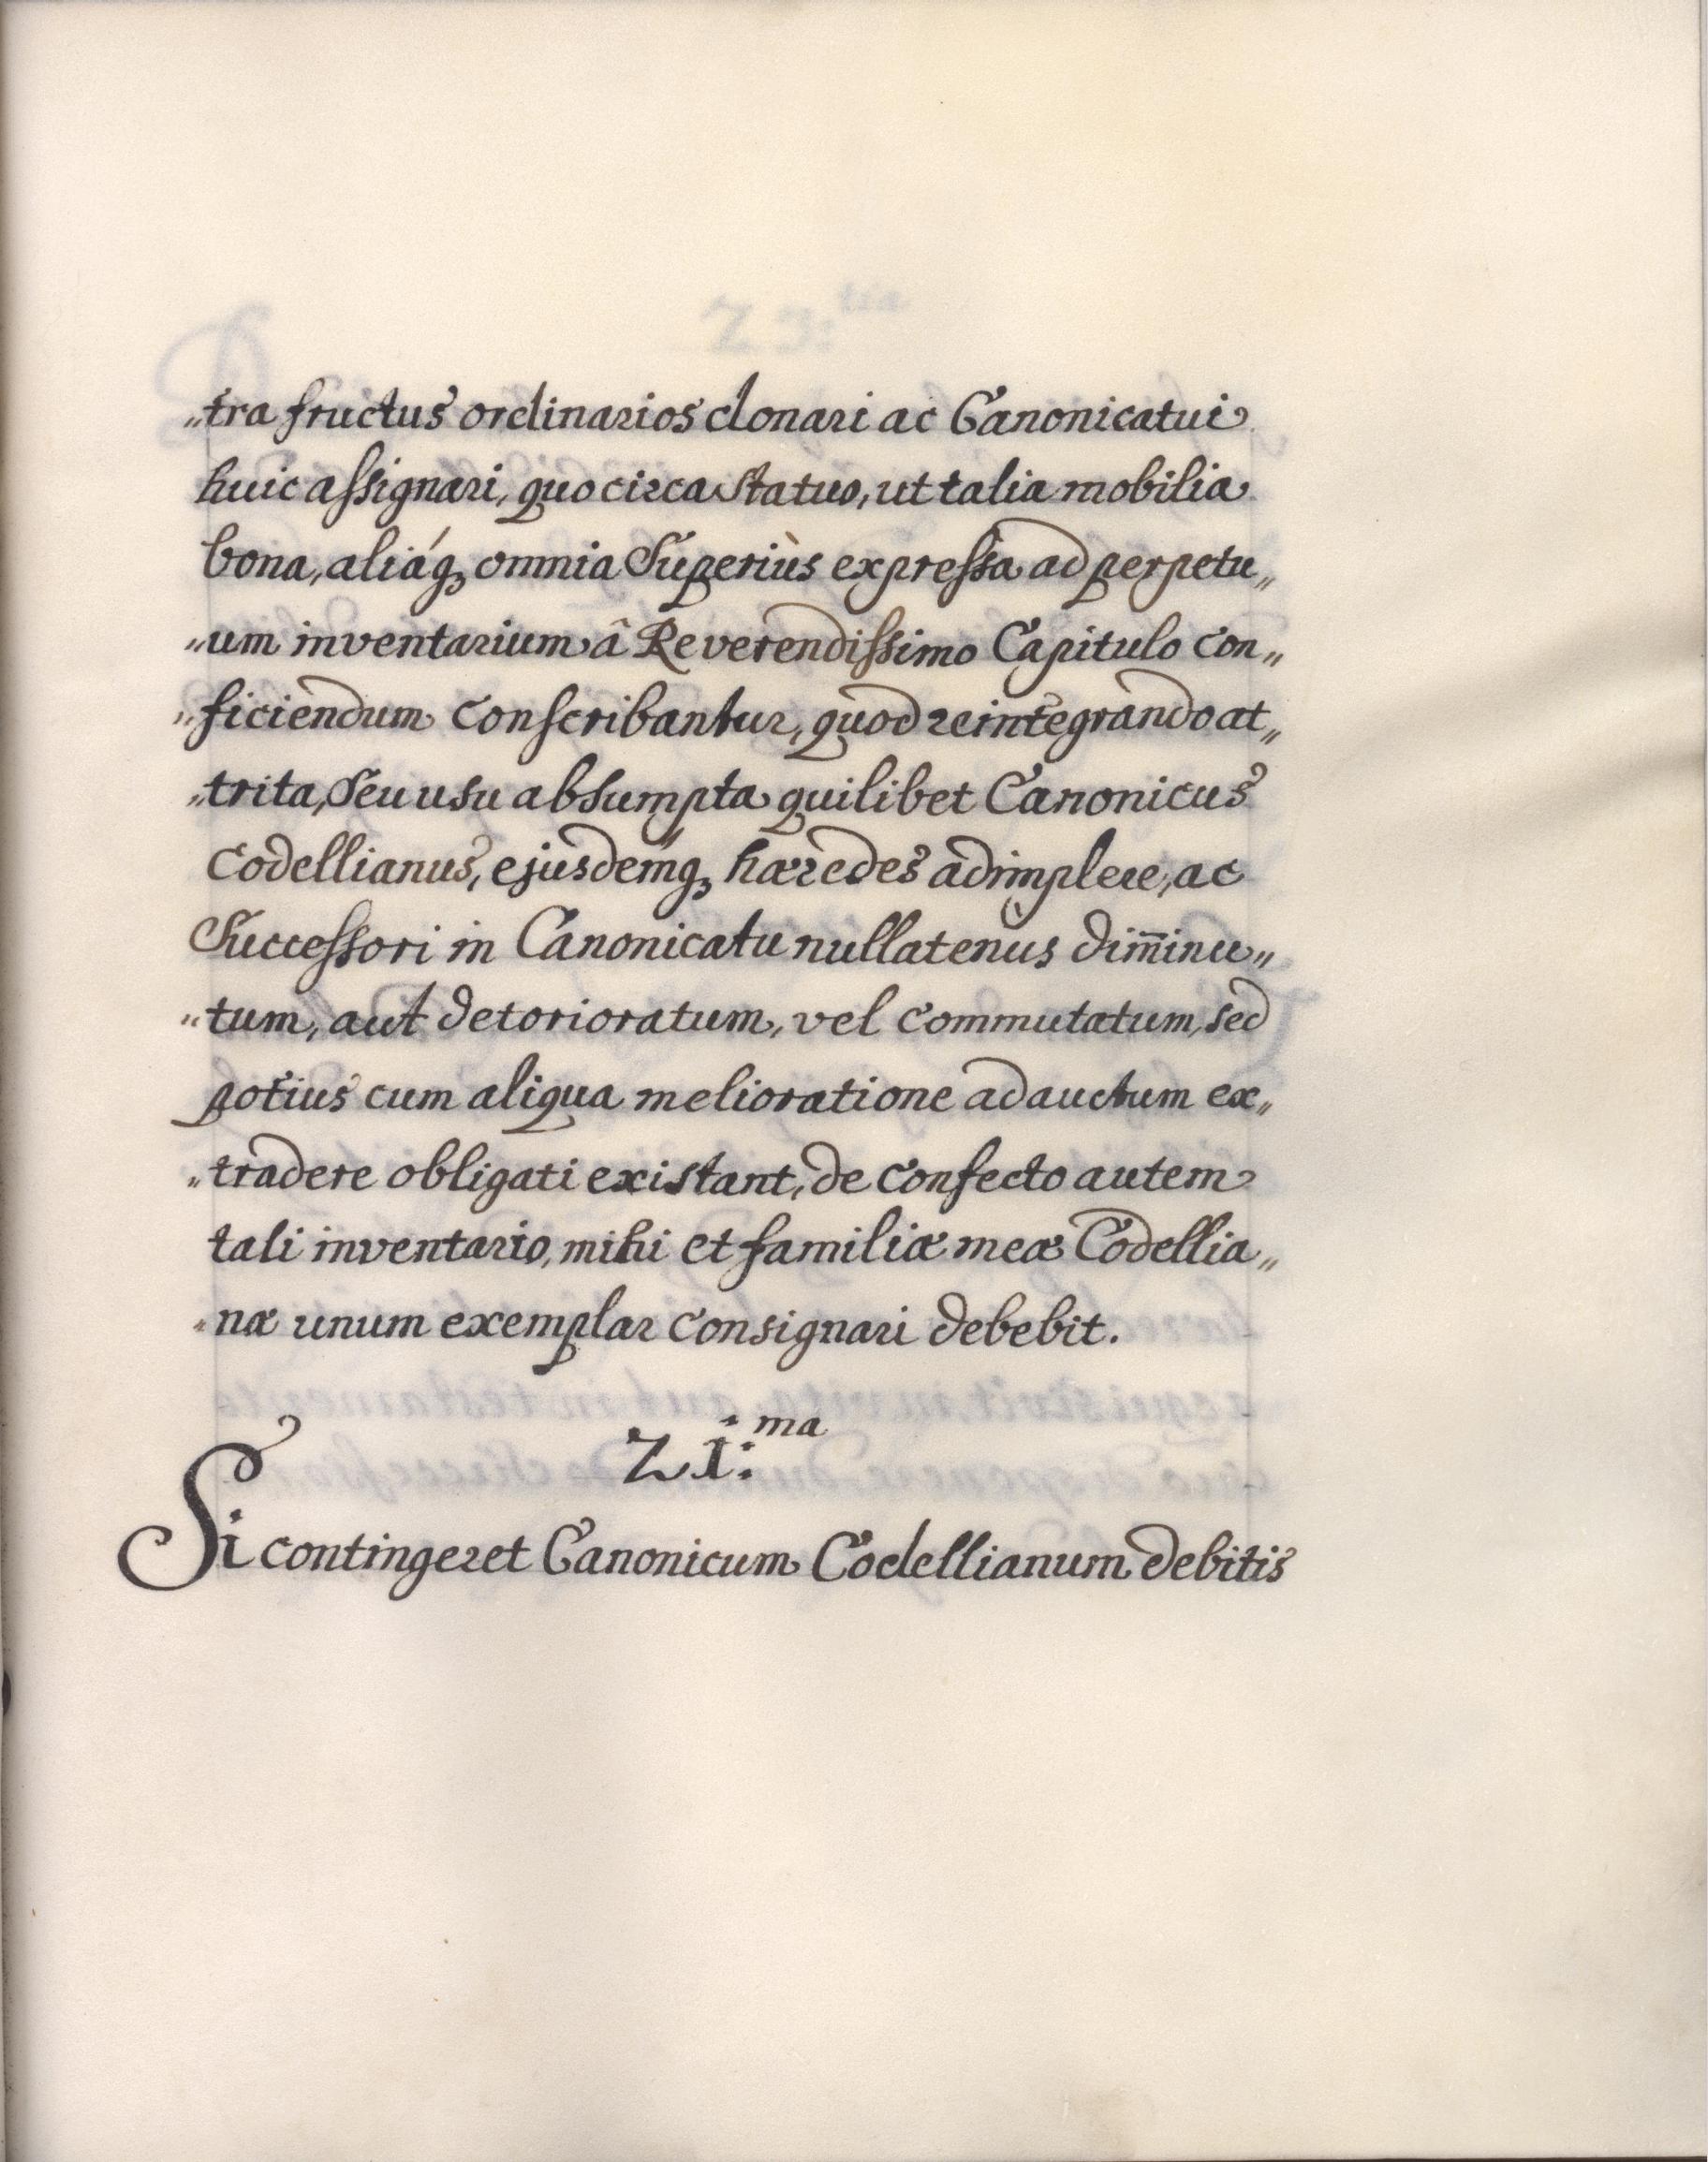 „tra fructus ordinarios donari ac Canonicatui
huic assignari, quocirca statuo, ut talia mobilia
bona, aliáq, omnia Superiùs expressa ad perpetu„
„um inventarium â Reverendissimo Capitulo con„
„ficiendum conscribantur, quod reintegrando at„
„trita, Seu usu absumpta quilibet Canonicus
Codellianus, ejusdemq, hæredes adimplere, ac
Successori in Canonicatu nullatenus dim̄inu„
„tum, aut detorioratum, vel commutatum, sed
potius cum aliqua melioratione adauctum ex„
„tradere obligati existant, de confecto autem
tali inventario, mihi et familiæ meæ Codellia„
„næ unum exemplar consignari debebit.
21:ma
Si contingeret Canonicum Codellianum debitis